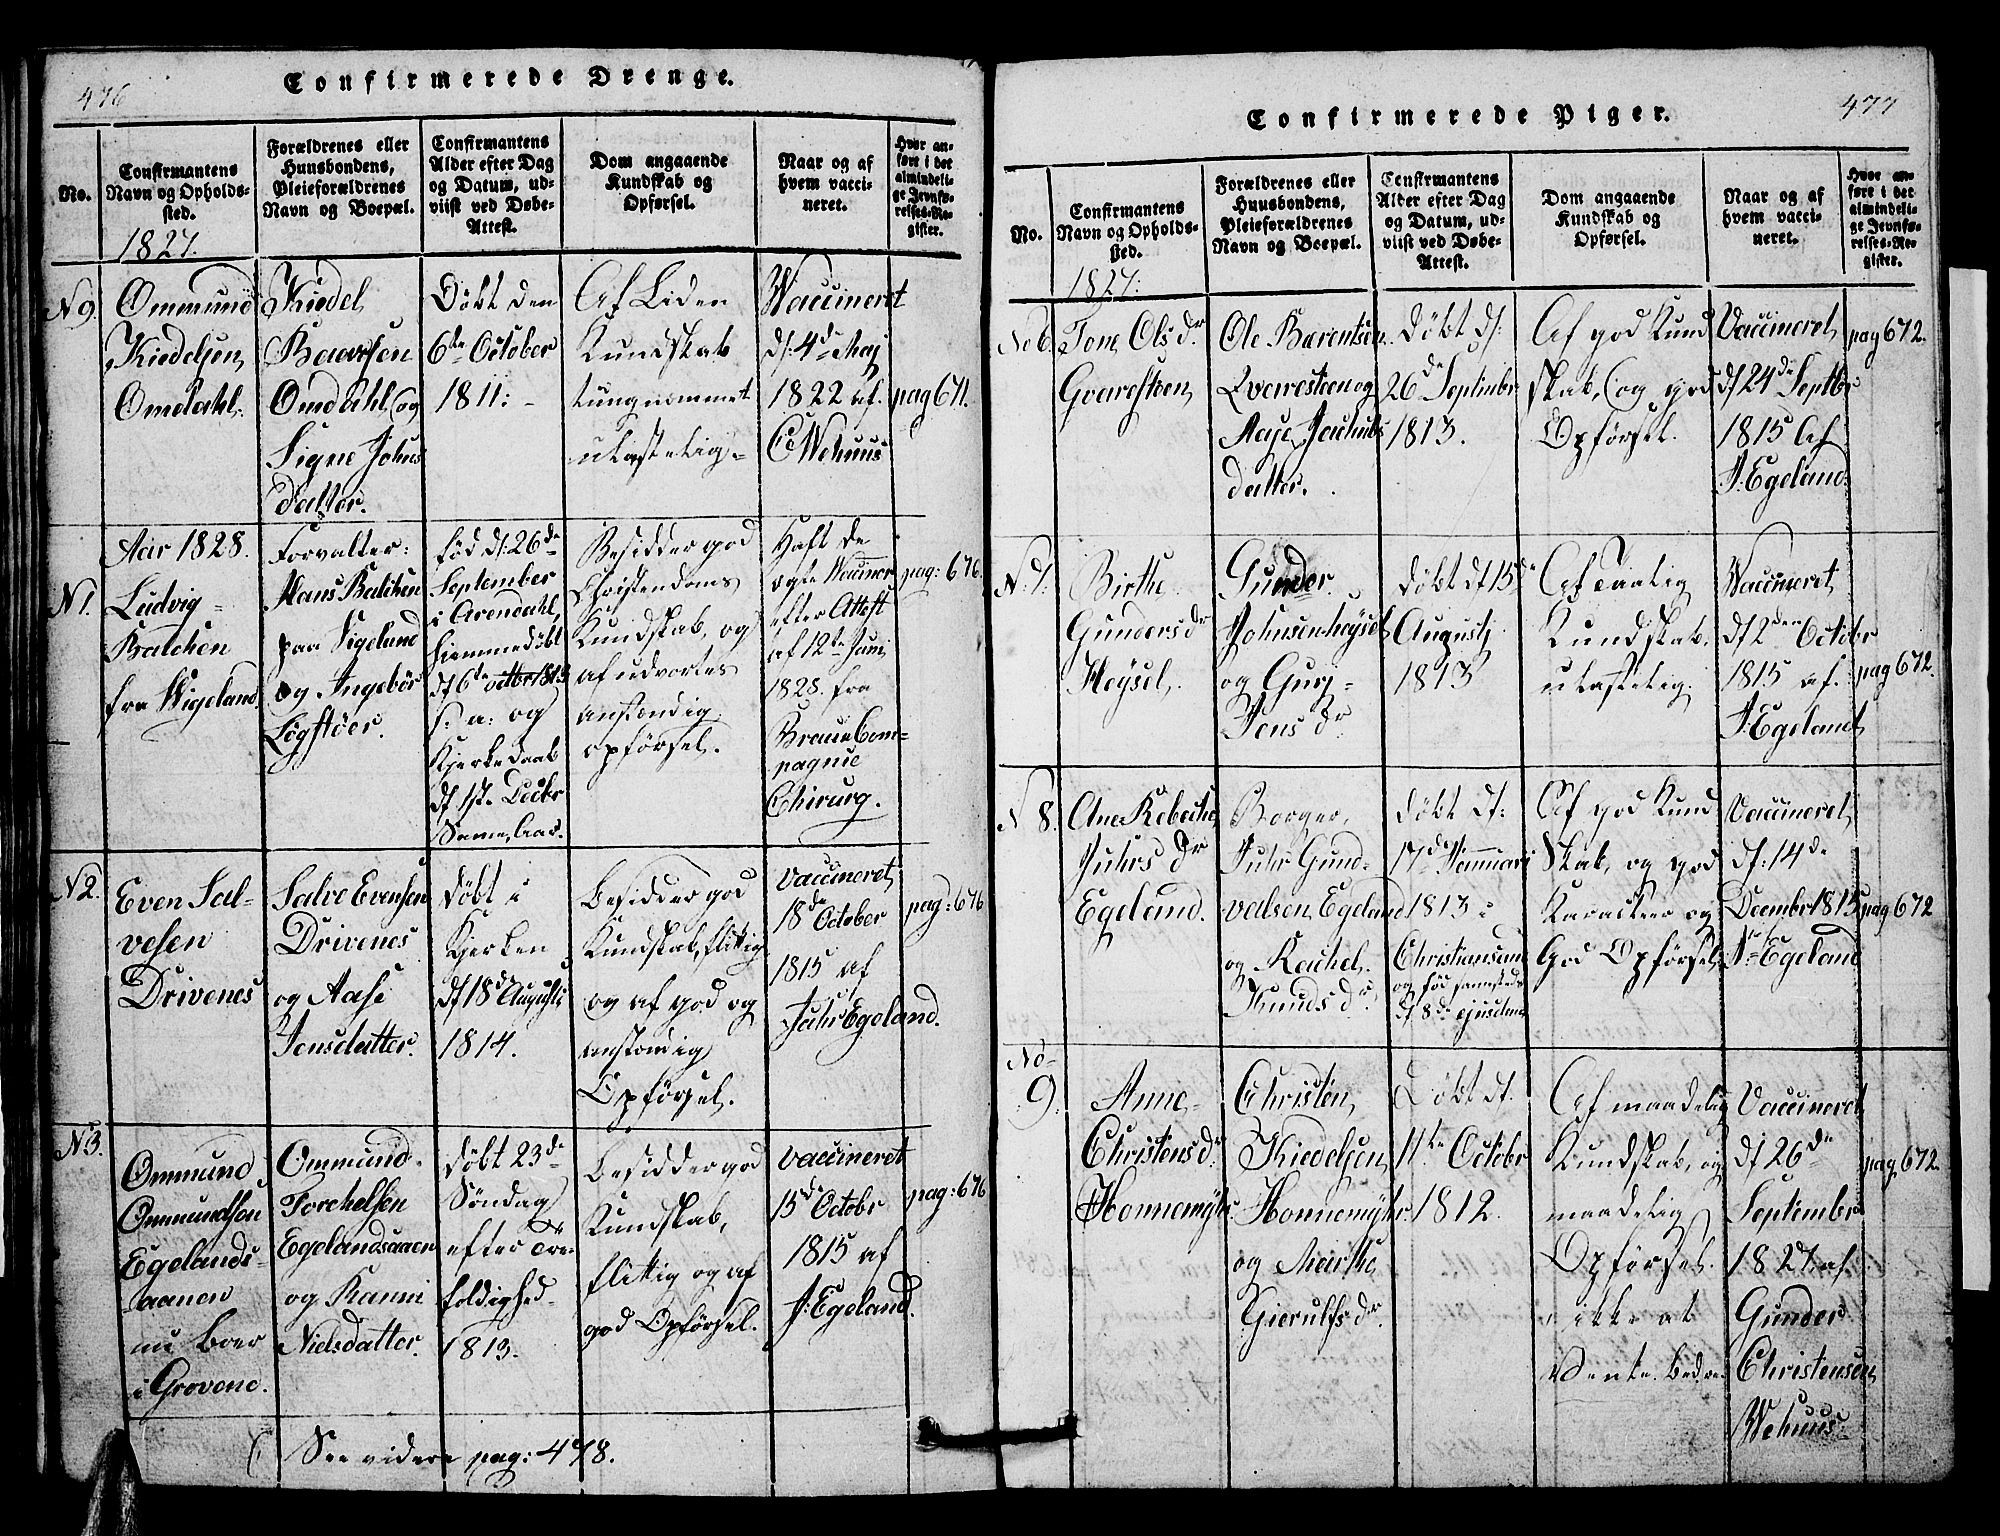 476
Confirmerede Drenge.
No.
Confirmantens
Navn og Opholds-
sted.
1827.
Forældrenes eller
Huusbondens,
Pleieforældrenes
Navn og Boepæl.
Confirmantens
Alder efter Dag
og Datum, ud-
viist ved Døbe-
Attest.
Dom angaaende
Kundskab og
Opførsel.
Naar og af
hvem vacci-
neret.
Hvor an-
ført i det
almindeli-
ge Jevnfø-
relses-Re-
gister.
N 9.
Ommund
Kiedelsen
Omdahl.
Kiedel
Omdahl, og
Signe Johns
datter.
Døbt den
6te October
1811: -
Af Liden
Kundskab
tungnemmet
ulastelig.
Vaccineret
d: 4de Maj
1822 af.
C Wehuus
pag 671.
Aar 1828.
N 1.
Ludvig
Balchen
fra Wigeland
Forvalter:
Hans Balchen
paa Vigeland
og Ingebør
Løgstöer.
fød d: 26de
September
i Arendahl,
hjemmedöbt
d 6te octbr 1813
s: a: og
Kjerkedaab
d 1ste Decbr
Samme Aar.
Besidder god
Christendoms
Kundskab, og
af udvortes
anstændig
opførsel.
Haft de
ægte Vacciner
efter Attest
af 12te Juni
1828. fra
Compagnie
Chirurg.
pag: 676.
N 2.
Even Sal-
vesen
Drivenes
Salve Evensen
Drivenes
og Aase
Jensdatter.
døbt i
Kjerken
d 18de Augusti
1814.
Besidder god
Kundskab, flittig
og af god og
anstændig
Opførsel.
vaccineret
18de October
1815 af
Juhr Egeland.
pag: 676
N 3.
Ommund
Ommundson
Egelands-
aanen
nu boer
i Grovene.
Ommund
Torchelsen
Egelandsaaen
og Kanni
Nielsdatter.
döbt 23de
Söndag
efter Tre-
foldighed
1813.
Besidder god
Kundskab,
flittig og af
god Opförsel.
vaccineret
15de Octobr
1815 af
J: Egeland.
pag: 676
See videre pag: 478.
477
Confirmerede Piger.
No.
Confirmantens
Navn og Opholds-
sted.
1827:
Forældrenes eller
Huusbondens,
Pleieforældrenes
Navn og Boepæl.
Confirmantens
Alder efter Dag
og Datum, ud-
viist ved Døbe-
Attest.
Dom angaaende
Kundskab og
Opførsel.
Naar og af
hvem vacci-
neret.
Hvor an-
ført i det
almindeli-
ge Jevnfø-
relses-Re-
gister.
No 6.
Tone Ols dr
Qvaresteen
Ole Barentsen
Qvaresteen og
Aase Jachobs
datter.
Døbt d:
26de Septembr
1813.
Af god Kund
skab, og god
Opførsel.
Vaccineret
d 24de Septbr
1815 af
J: Egeland.
pag 672.
N. 7.
Birthe
Gunders dr
Heysel.
Gunder
Johnsen Heysel
og Guri
Jens dr
Døbt d 15de
Augusti
1813
Af Taalig
Kundskab.
ulastelig.
Vaccineret
d 2den Octobr
1815 af.
J: Egeland
pag 672.
N 8.
Juhrs dr
Egeland.
Borger
Juhr Gund-
valsen Egeland
og Rachel
Knuds dr
døbt d:
17de Januari
1813 i
Christiansand
og fød sammesteds
d 8de ejusdem
Af god Kund
Skab, og god
Karackter og
God Opførsel.
Vaccineret
d: 14de
December 1815
J: Egeland
pag 672
No
9.
Anne
Christens dr
Honnemÿhr
Christen
Kiedelsen
Honnemÿhr.
og Marthe
Gierulfs dr
Døbt d.
11te Octobr
1812.
Af maadelig
Kundskab, og
maadelig
Opførsel.
ikke at
vente bedre.
Vaccineret
d 26de
Septembr
1827. af
Gunder
Christensen
Wehuus
pag 672.